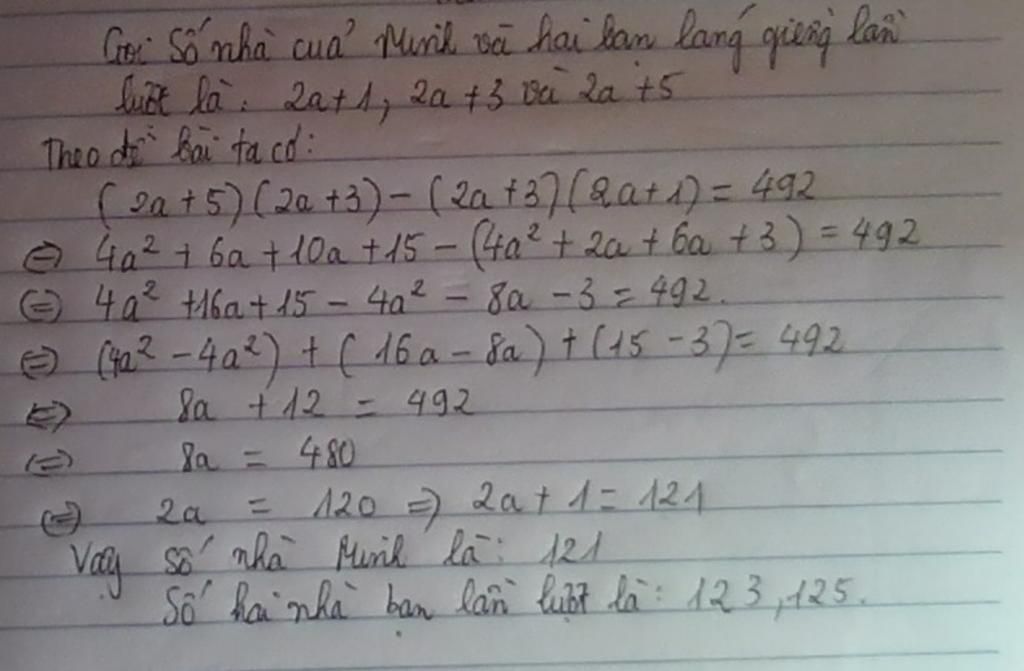 Gọi Số nhà của Minh và hai bạn láng giềng lần
lượt là: 2a+1, 2a+3 và 2a+5
Theo đề bài ta có:
(2a+5)(2a+3)-(2a+3)(2a+1)=492
⇔ 4a² + 6a + 10a + 15 - (4a² + 2a + 6a + 3) = 492
⇔ 4a² +16a + 15 - 4a² - 8a - 3 = 492.
⇔ (4a² - 4a²) + (16a - 8a) + (15 - 3) = 492
⇔ 8a + 12 = 492
⇔ 8a = 480
⇔ 2a = 120 ⇒ 2a + 1 = 121
Vậy số nhà Minh là: 121
Số hai nhà bạn lần lượt là: 123, 125.